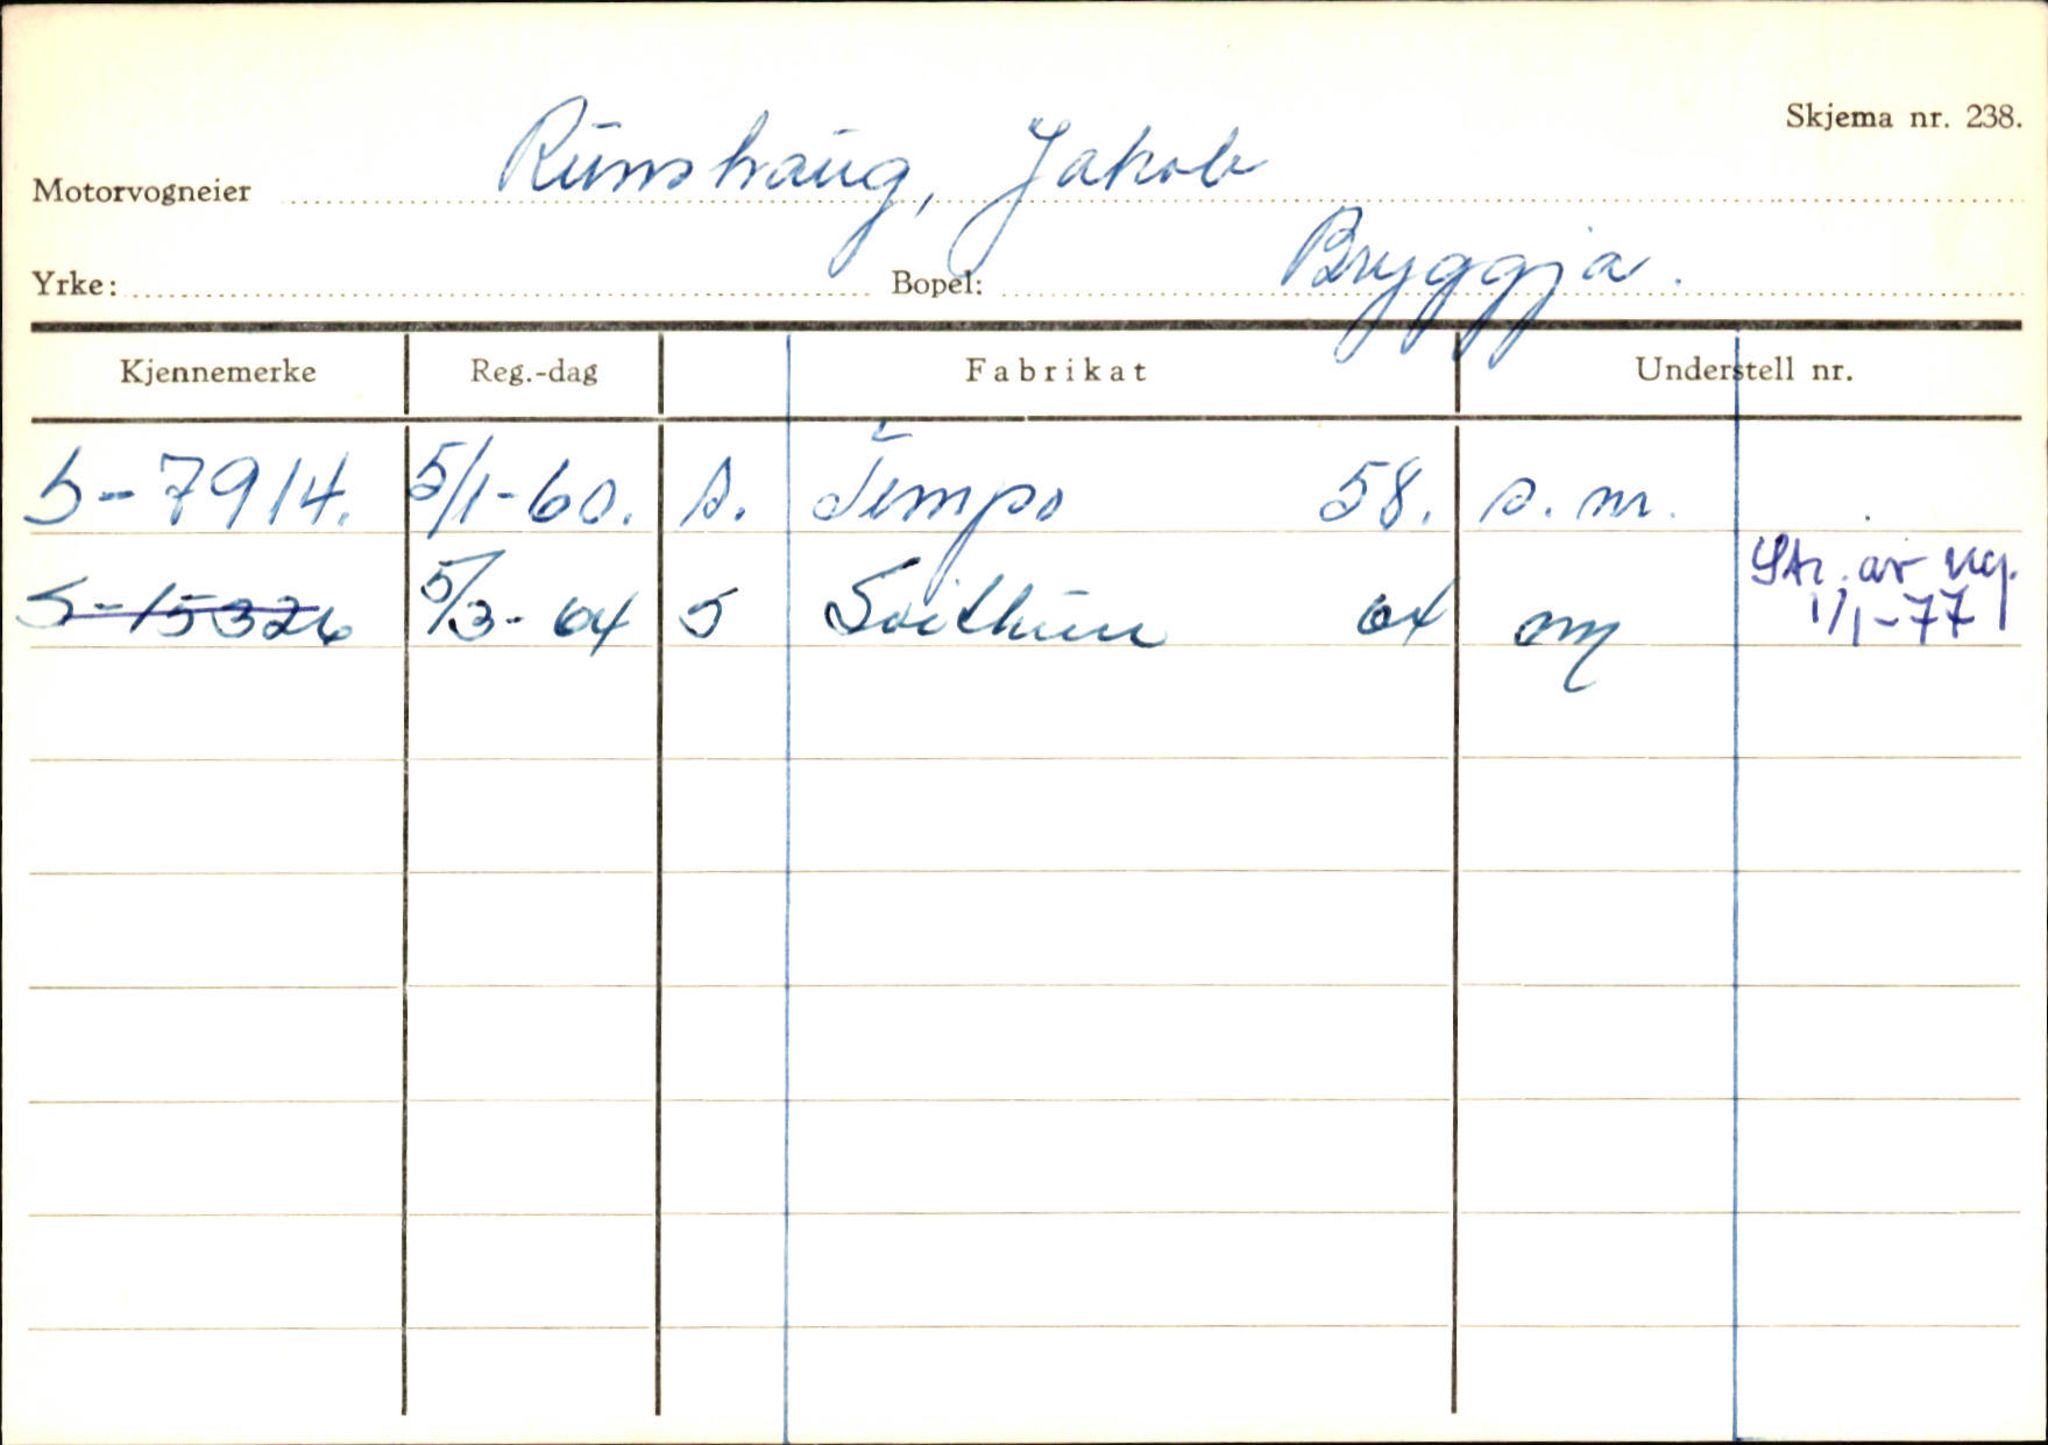 Skjema nr. 238.
Motorvogneier Runshaug, Jakob
Yrke: Bopel: Bryggja.
Kjennemerke Reg.-dag Fabrikat Understell nr.
S-7914. 5/1-60. s. Tempo 58. s. nr.
S-15326 5/3-64 S Svithun 64 ny Str. av reg.
1/1-77